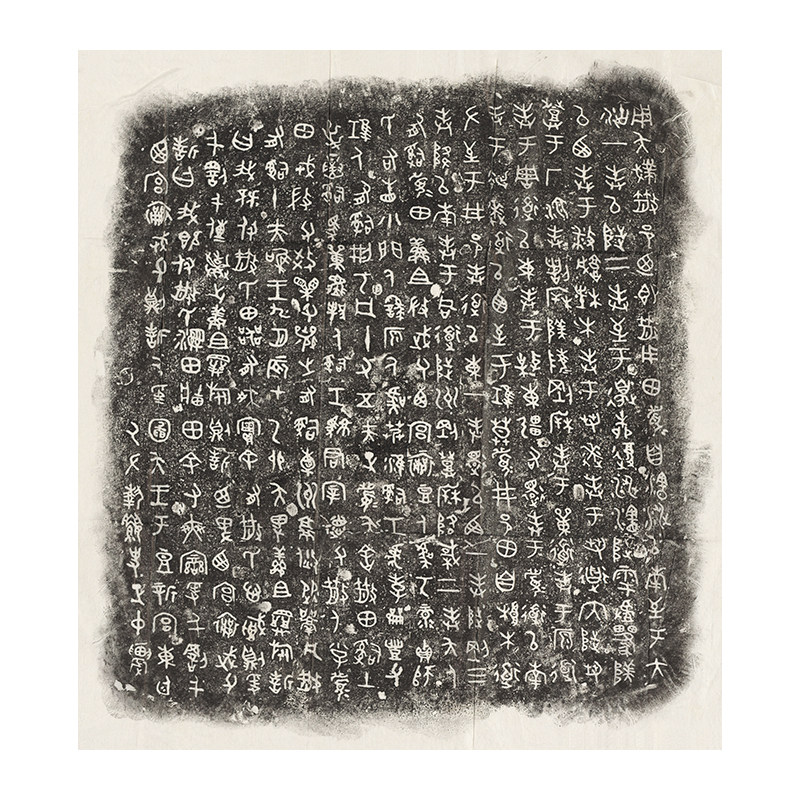 用夨𢾭散邑乃即散用田眉自瀗涉以南至于大
沽一封以陟二封至于邊柳復涉瀗陟雩
以西封于播城楮木封于芻逨封于芻道內陟芻
登于厂湶封諸𣂁陵剛𣂁封于單道封于原道
封于周道以東封于東疆右還封于眉道以南
封于逨道以西至于莫眉井邑田自桹木道
左至于井邑封道以東一封還以西一封陟剛三
封降以南封于同道陟州剛登𣂁降棫二封夨人
有司眉田鮮且微武父西宮襄豆人虞丂彔貞師
氏右眚小門人繇原人虞艿淮司工虎孝豐父
人有司刑丂凡十又五夫正眉夨舍散田司土
逆寅司馬單人司工君宰德父散人小子眉
田戎微父效父襄之有司橐州就焂從凡散
有司十夫唯王九月辰才乙卯夨俾鮮且旅誓
曰我既付散氏田器有爽實余有散氏心賊則爰
千罰千傳棄之鮮且旅則誓乃俾西宮襄武父
誓曰我既付散氏濕田牆田余有爽變爰千罰千
西宮襄武父則誓厥受圖夨王于豆新宮東廷
厥左執史正中農